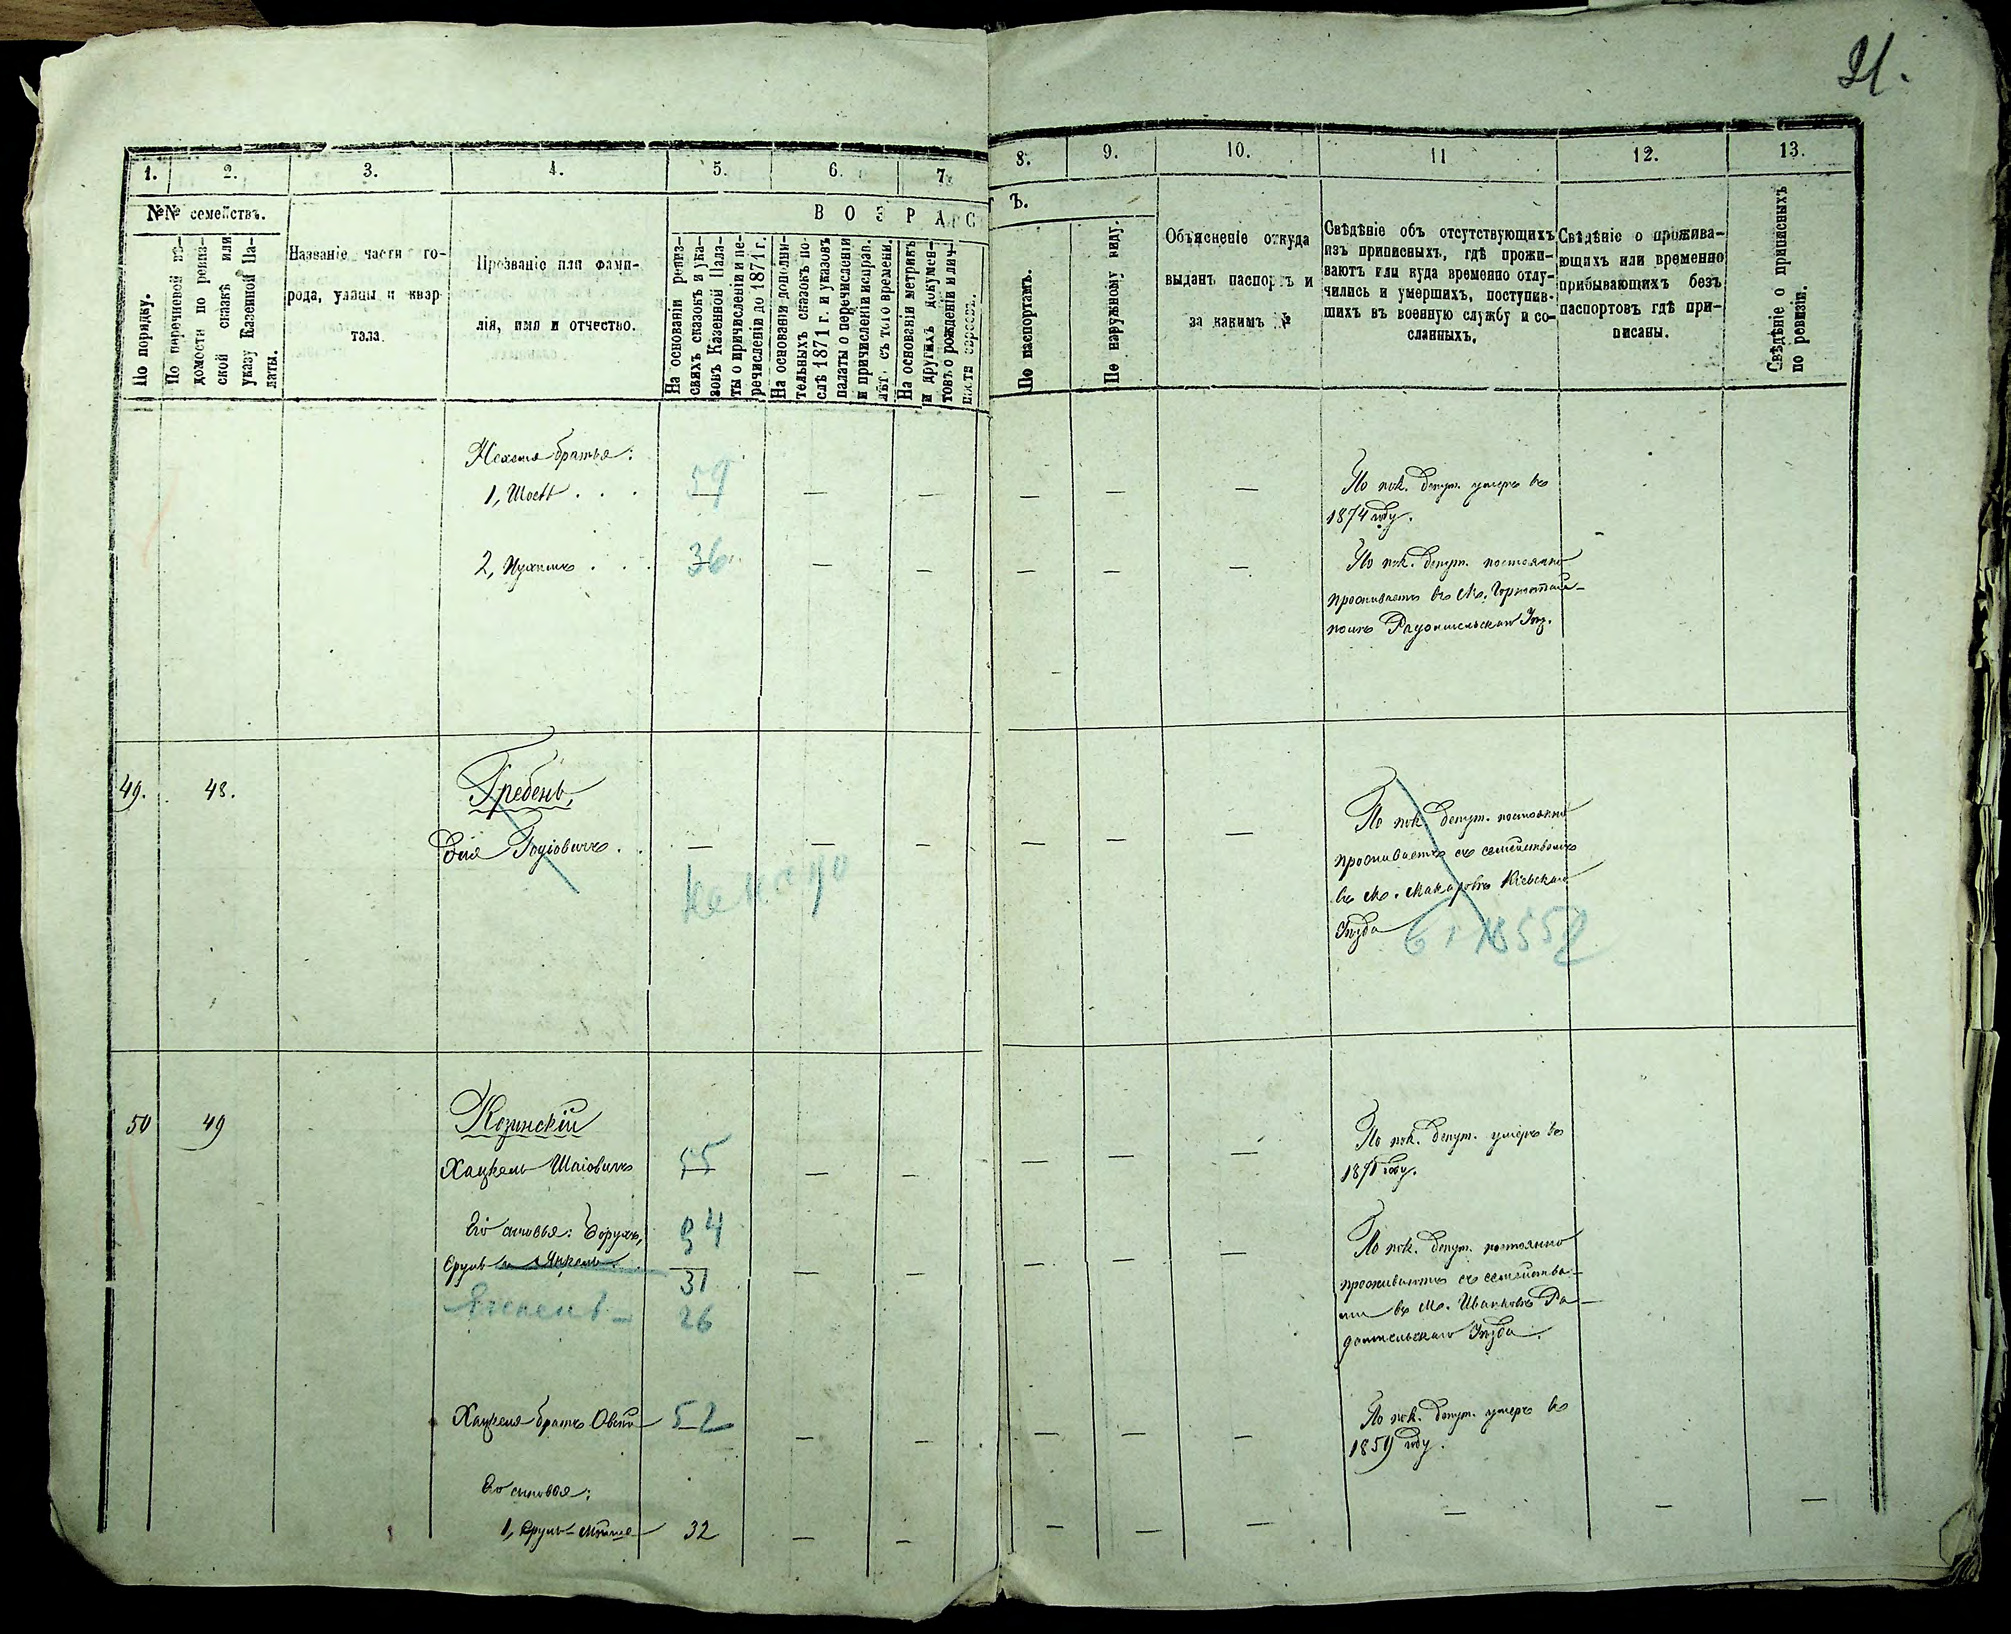 21.
1.
2.
3.
4.
5.
6.
7.
8.
9.
10.
11
12.
13.
№№ семействъ.
ВОЗРАСТЪ.
По порядку.
По перечневой вѣ-
домости по ревиз-
ской сказкѣ или
указу Казенной Па-
латы.
Названіе части го-
рода, улицы и квар-
тала.
Прозваніе или фами-
лія, имя и отчество.
На основаніи ревиз-
скихъ сказокъ и ука-
зовъ Казенной Пала-
ты о причисленіи и пе-
речисленіи до 1871 г.
На основаніи дополни-
тельныхъ сказокъ по-
слѣ 1871 г. и указовъ
палаты о перечисленіи
и причисленіи исправ.
лѣт. съ того времени.
На основаніи метрикъ
и другихъ докумен-
товъ о рожденіи и лич-
ности евреевъ.
По паспортамъ.
По наружному виду.
Объясненіе откуда
выданъ паспортъ и
за какимъ №
Свѣдѣніе объ отсутствующихъ
изъ приписныхъ, гдѣ прожи-
ваютъ или куда временно отлу-
чились и умершихъ, поступив-
шихъ въ военную службу и со-
сланныхъ.
Свѣдѣніе о прожива-
ющихъ или временно
прибывающихъ безъ
паспортовъ гдѣ при-
писаны.
Свѣдѣніе о приписныхъ
по ревизіи.
братья:
1, . . . — — — — — —
По пок. депут. умеръ въ
1874 году.
2, . . . 36 — — — — —
По пок. депут. постоянно
проживаетъ въ м. Горностай-
полѣ Радомысльскаго Уѣз.
49. 48.
Гребень,
. — — — — — —
По пок. депут. постоянно
проживаетъ съ семействомъ
въ м. Макаровѣ Кіевскаго
Уѣзда
50 49
Козинскій
Хацкель Шаіовичъ 55 — — — — —
По пок. депут. умеръ въ
187 году.
Его сыновья: Борухъ, 34
Сруль и Янкель 31 — — — — —
Янкель — 26
По пок. депут. постоянно
проживаютъ съ семейства-
ми въ м. Иванковѣ Ра-
домысльскаго Уѣзда.
Хацкеля братъ Овсій 52 — — — — —
По пок. депут. умеръ въ
1859 году.
Его сыновья:
1, Сруль-Мойше 32 — — — — — — — —